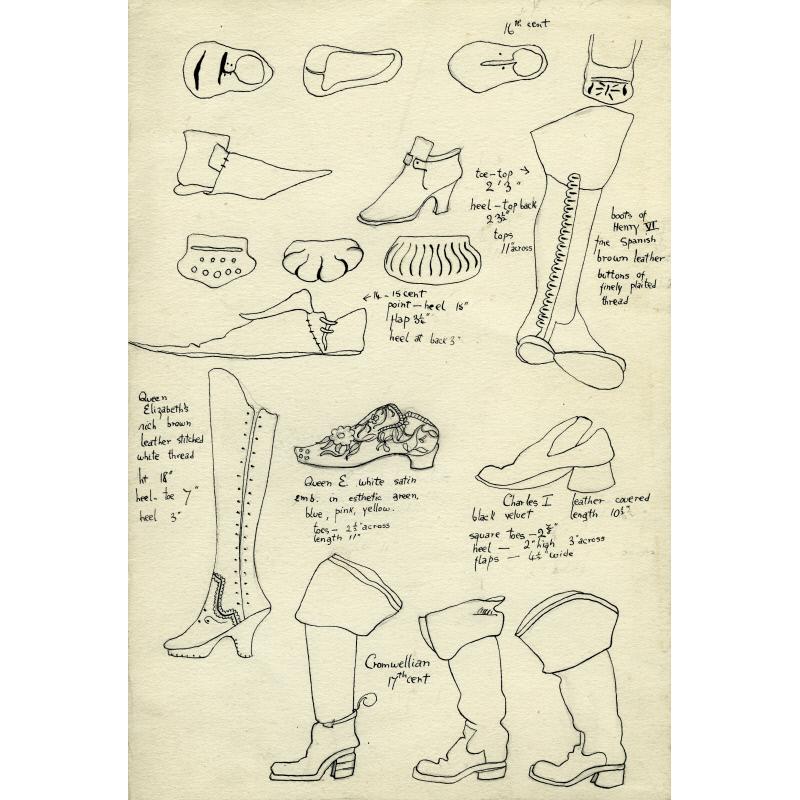 16th cent
toe-top →
2' 3"
heel-top back
2 3½"
tops
11" across
boots of
Henry VI
fine Spanish
brown leather
buttons of
finely plaited
thread
← 14-15 cent
point-heel 15"
flap 3½"
heel at back 3"
Queen
Elizabeth's
rich brown
leather stitched
white thread
ht 18"
heel-toe 7"
heel 3"
Queen E. white satin
emb. in esthetic green,
blue, pink, yellow.
toes - 2½" across
length 11"
Charles I leather covered
black velvet length 10½"
square toes -
heel - 2" high 3" across
flaps - 4½" wide
Cromwellian
17th cent